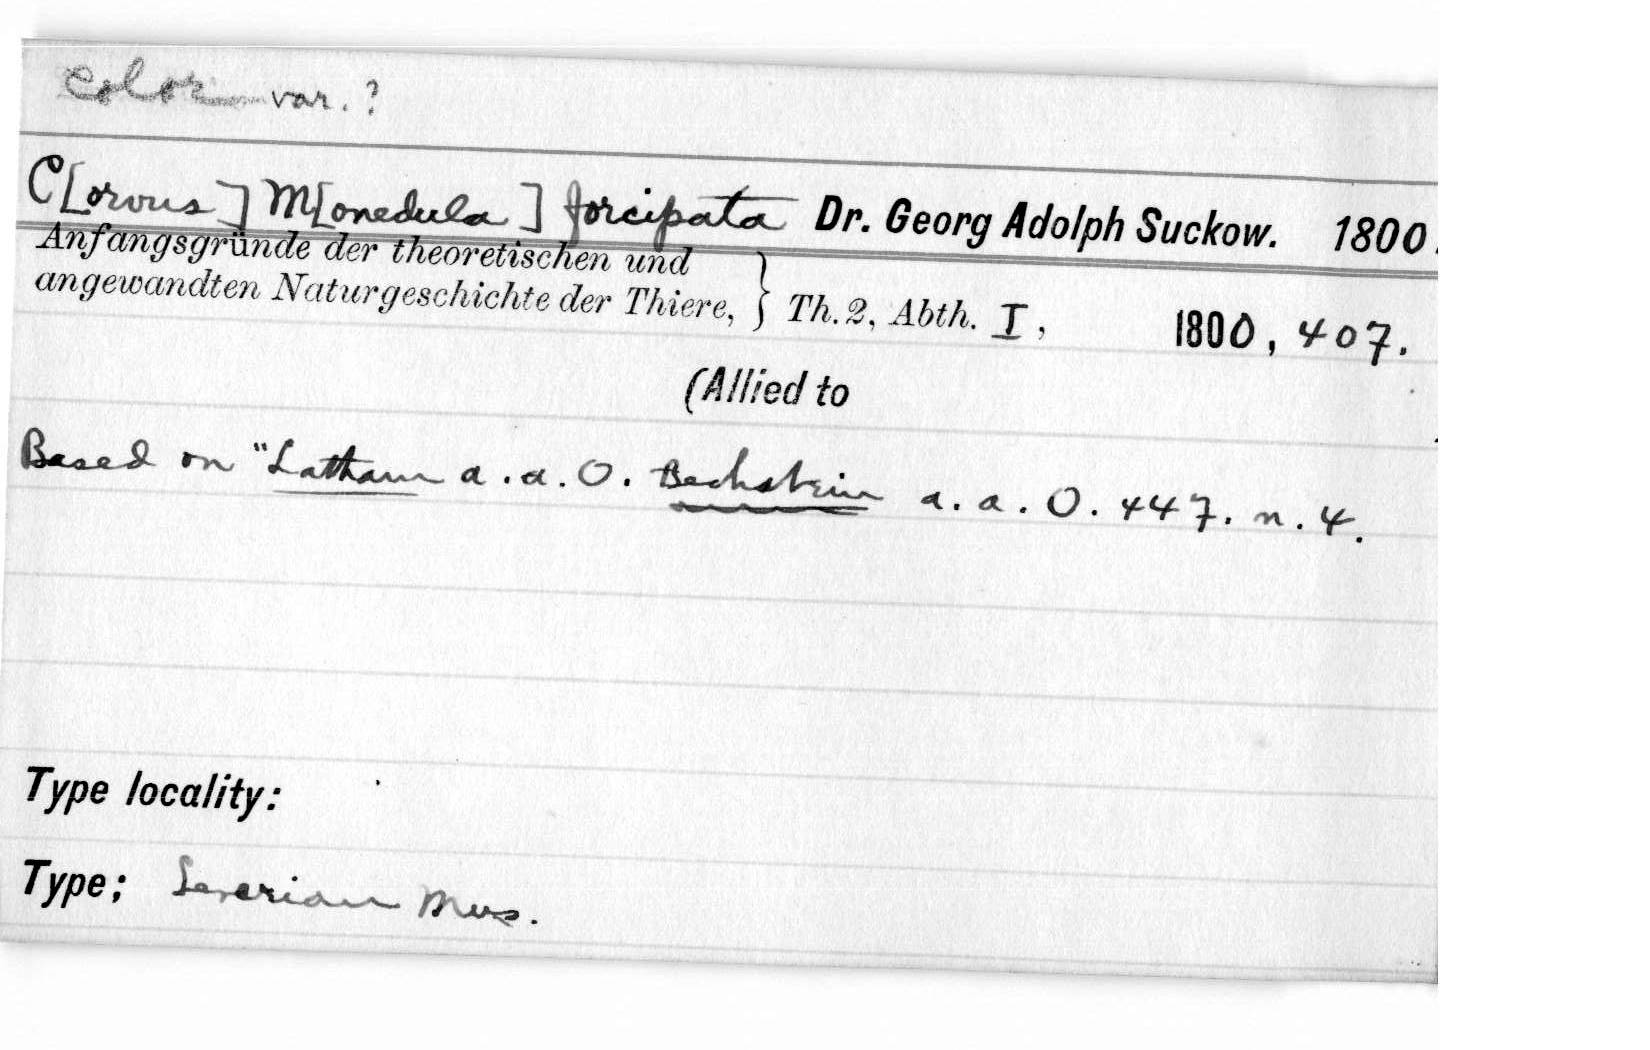 color var. ?
C[orvus] M[onedula] forcipata Dr. Georg Adolph Suckow. 1800.
Anfangsgründe der theoretischen und
angewandten Naturgeschichte der Thiere, } Th. 2, Abth. I, 1800, 407.
(Allied to
Based on "Latham a. a. O. Bechstein a. a. O. 447. n. 4.
Type locality:
Type; Leverian Mus.